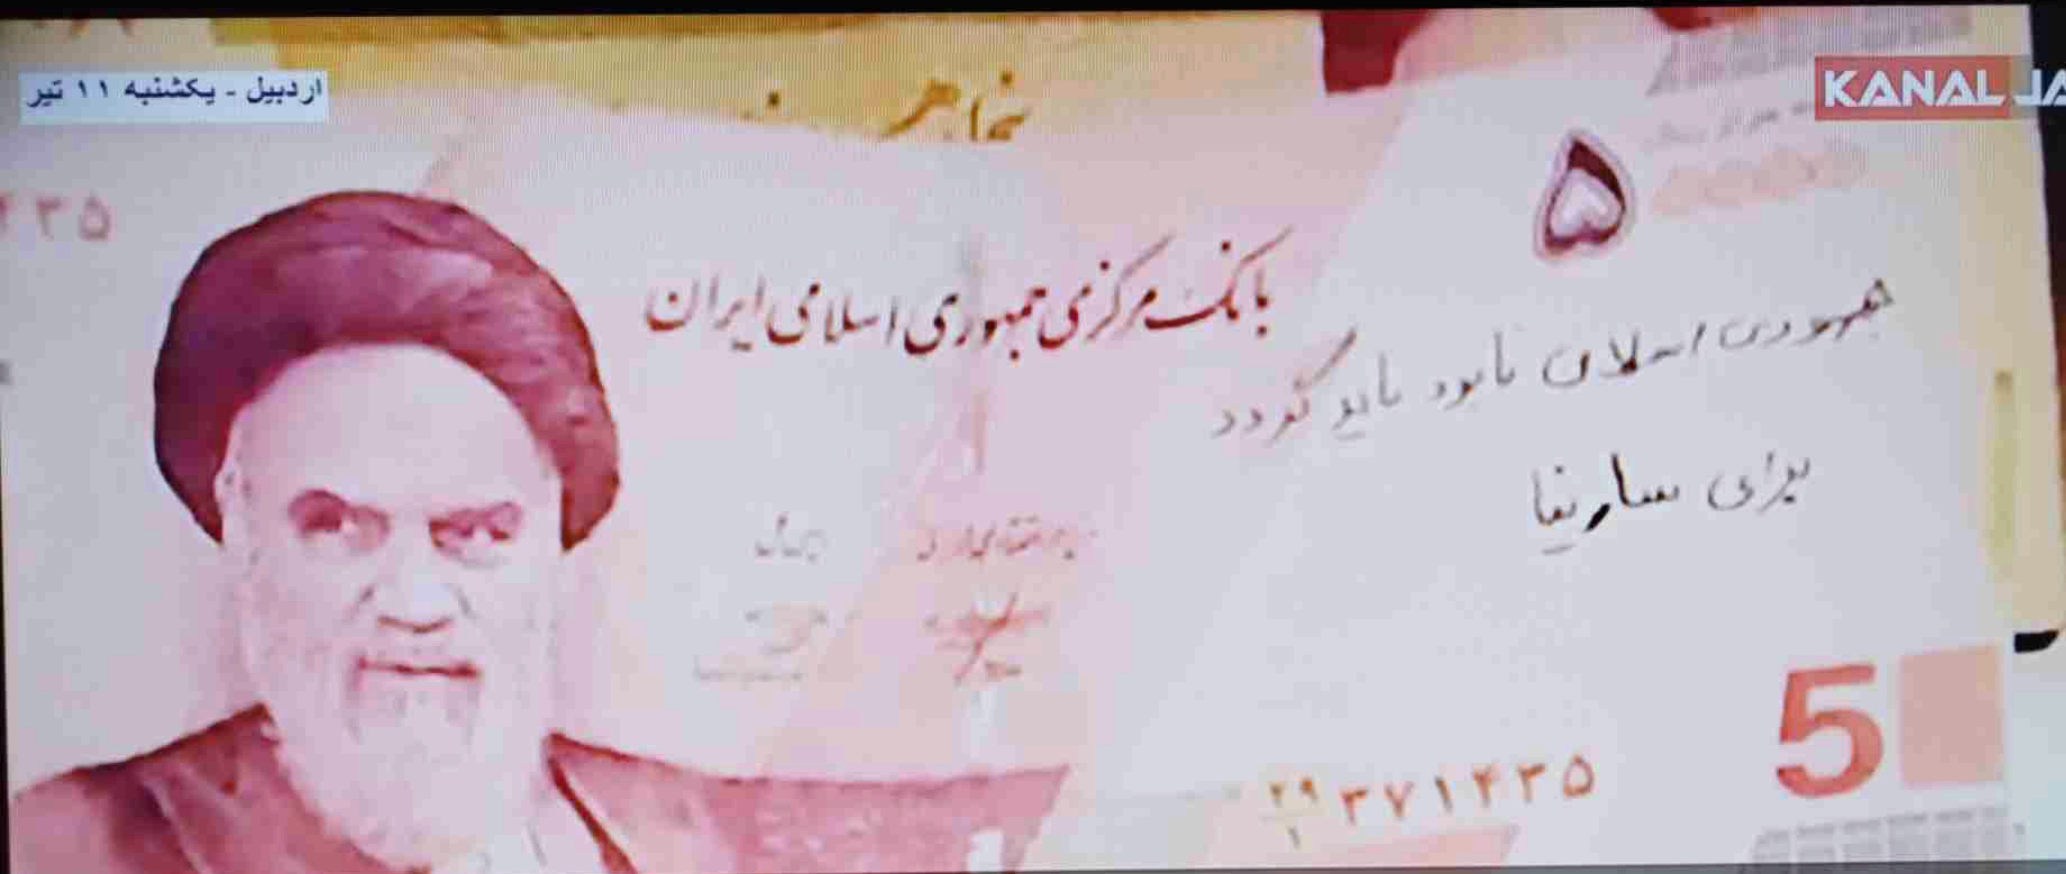 اردبیل - یکشنبه ۱۱ تیر
KANAL JA
۴۳۵
۵
بانک مرکزی جمهوری اسلامی ایران
جمهوری اسلامی نابود باید گردد
برای سارینا
5
۲۹/۱ ۳۷۱۴۳۵